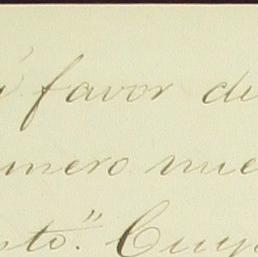 á favor de
imero nue
sto." Cuyo